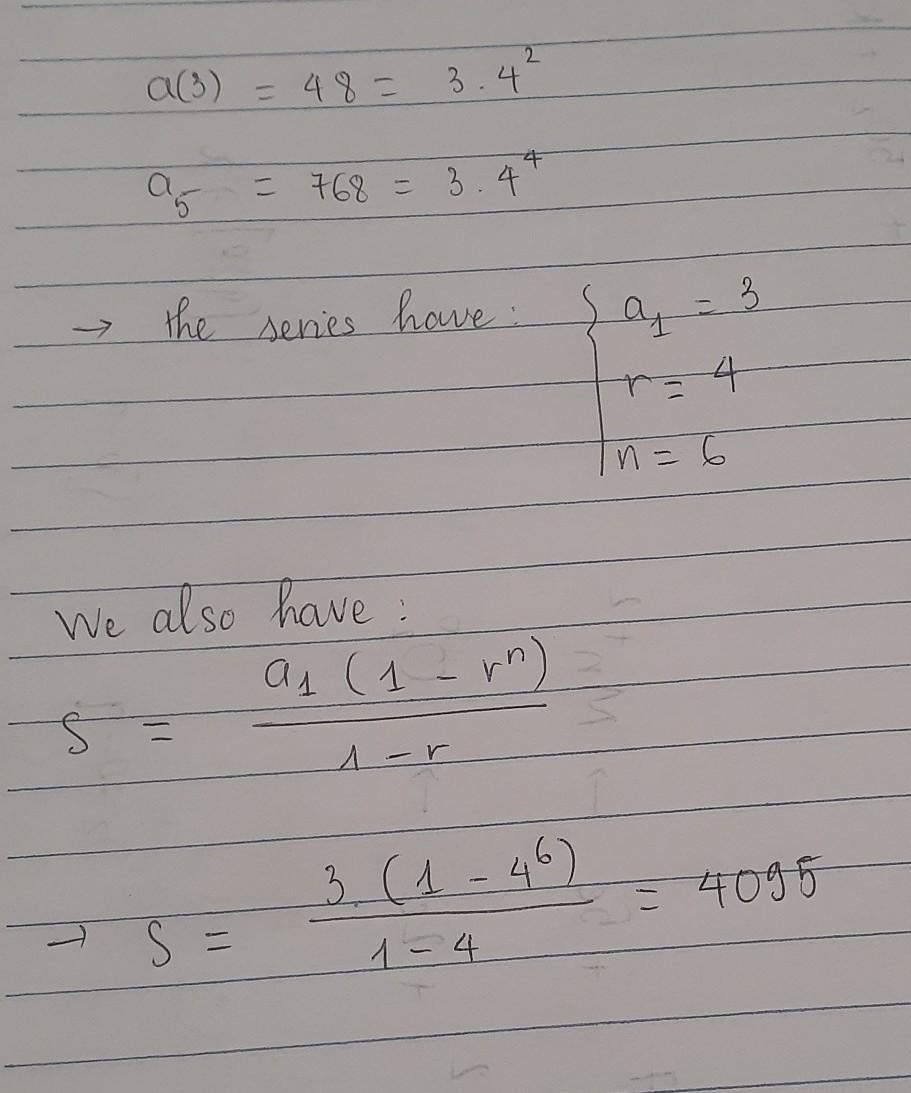 a(3) = 48 = 3 . 4²
a₅ = 768 = 3 . 4⁴
→ the series have : { a₁ = 3
r = 4
n = 6
We also have :
S = a₁ (1 - rⁿ) / 1 - r
→ S = 3. (1 - 4⁶) / 1 - 4 = 4095